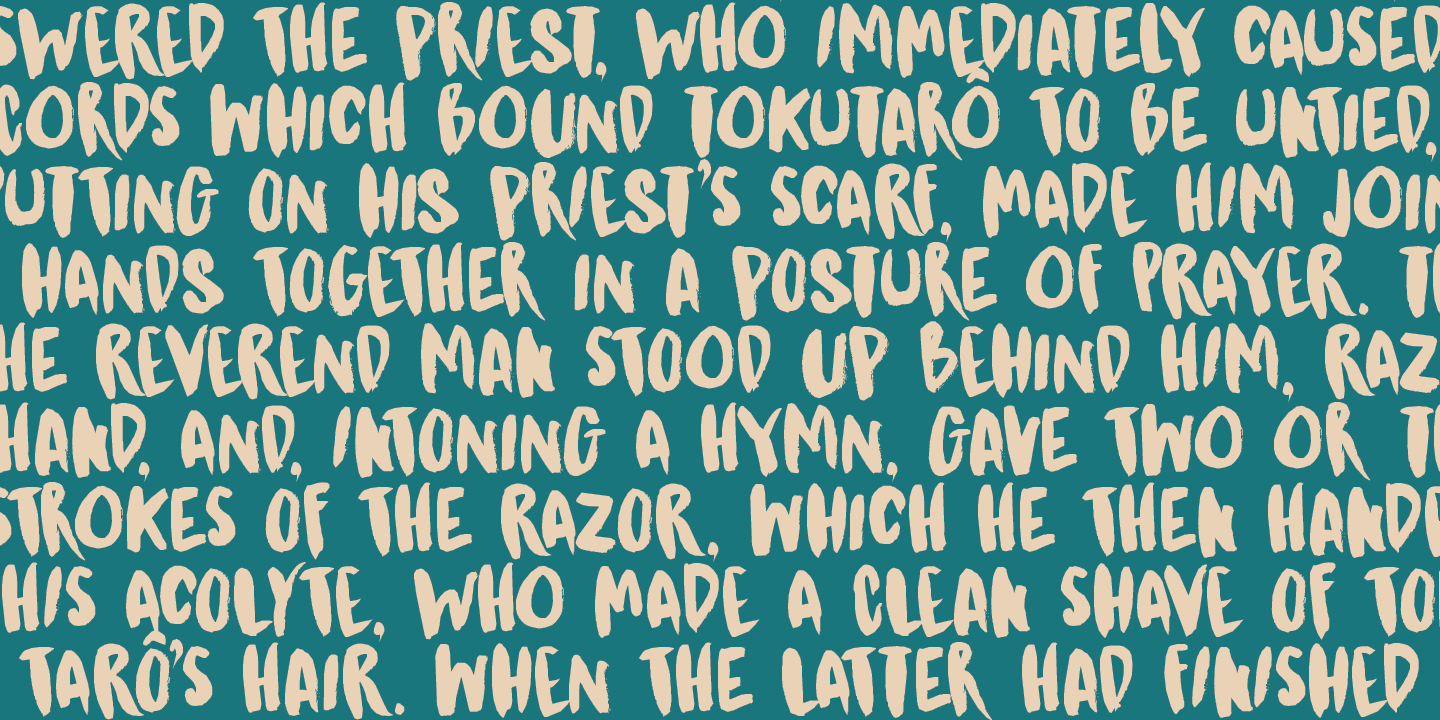 SWERED THE PRIEST, WHO IMMEDIATELY CAUSED
CORDS WHICH BOUND TOKUTARÔ TO BE UNTIED,
PUTTING ON HIS PRIEST'S SCARF, MADE HIM JOIN
HANDS TOGETHER IN A POSTURE OF PRAYER. TH
HE REVEREND MAN STOOD UP BEHIND HIM, RAZ
HAND, AND, INTONING A HYMN, GAVE TWO OR TH
STROKES OF THE RAZOR, WHICH HE THEN HANDE
HIS ACOLYTE, WHO MADE A CLEAN SHAVE OF TOK
TARÔ'S HAIR. WHEN THE LATTER HAD FINISHED